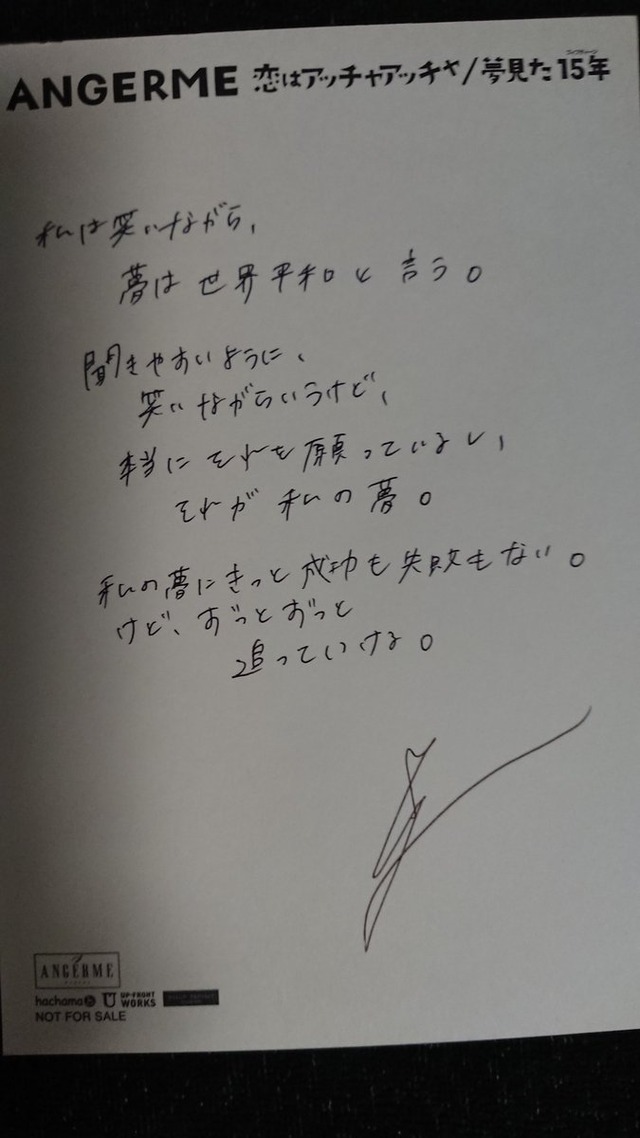 ANGERME 恋はアッチャアッチャ/夢見た15年
フィフティーン
私は笑いながら、
夢は世界平和と言う。
聞きやすいように、
笑いながらいうけど、
本当にそれを願っているし、
それが私の夢。
私の夢にきっと成功も失敗もない。
けど、ずっとずっと
追っていける。
ANGERME
hachama
UP-FRONT
WORKS
NOT FOR SALE